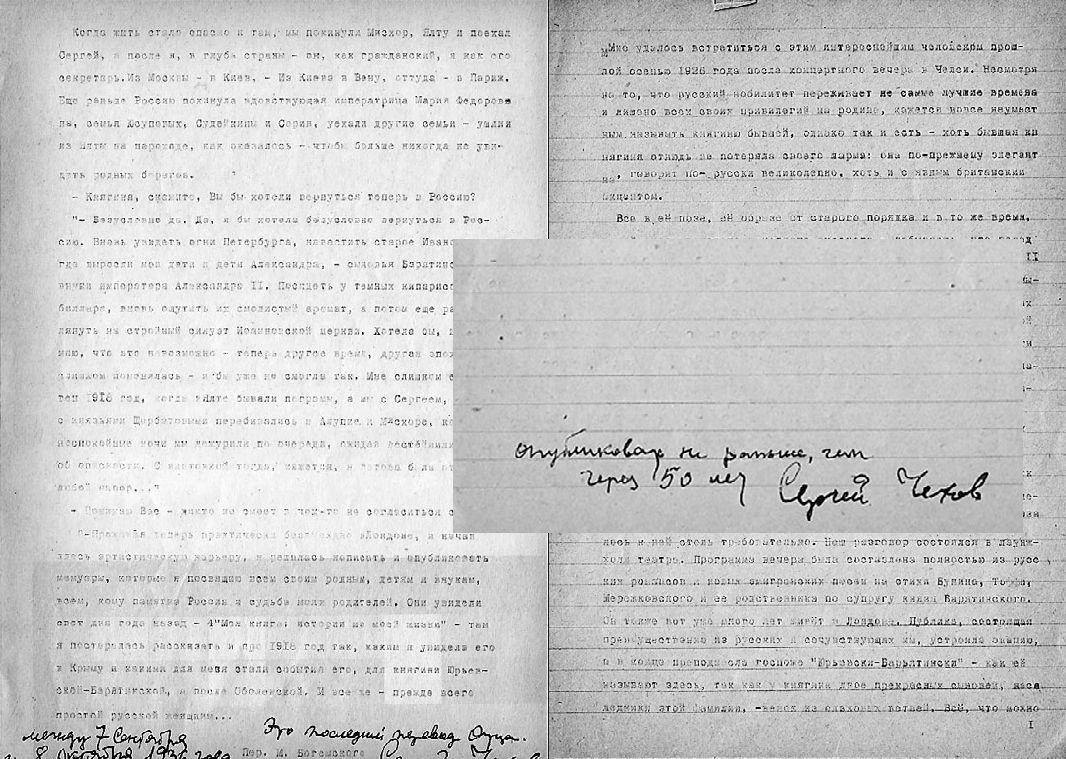 Когда жить стало опасно и там, мы покинули Мисхор, Ялту и поехал
Сергей, а после я, в глубь страны - он, как гражданский, я как его
секретарь. Из Москвы - в Киев, - Из Киева в Вену, оттуда - в Париж.
Еще раньше Россию покинула вдовствующая императрица Мария Федоров
на, семья Юсуповых, Судейкины и Сорин, уехали другие семьи - уплыли
из Ялты на пароходе, как оказалось - чтобы больше никогда не уви-
дать родных берегов.
- Княгиня, скажите, Вы бы хотели вернуться теперь в Россию?
"- Безусловно да. Да, я бы хотела безусловно вернуться в Рос-
сию. Вновь увидать огни Петербурга, навестить старое Ивано
где выросли мои дети и дети Александра, - сыновья Барятинс
внуки императора Александра II. Посидеть у темных кипарисо
биллара, вновь ощутить их смолистый аромат, а потом еще ра
лянуть на стройный силуэт Иоанновской церкви. Хотела бы,
маю, что это невозможно - теперь другое время, другая эпох
слишком поменялась - я бы уже не смогла так. Мне слишком
тен 1918 год, когда в Ялте бывали погромы, а мы с Сергеем,
с князьями Щербатовыми перебивались в Алупке и Мисхоре,
неспокойные ночи мы дежурили по очереди, ожидая
об опасности. С винтовкой тогда, кажется, я готова была
любой напор..."
- Понимаю Вас - никто не смеет в чем-то не согласиться с
"-Проживая теперь практически безвыездно в Лондоне, и начав
здесь артистическую карьеру, я решилась написать и опубликовать
мемуары, которые я посвящаю всем своим родным, детям и внукам,
всем, кому памятна Россия и судьба моих родителей. Они увидели
свет два года назад - "Моя книга: истории из моей жизни" - там
я постаралась рассказать и про 1918 год так, каким я увидела его
в Крыму и какими для меня стали события его, для княгини Юрьев-
ской-Барятинской, а после Оболенской. И все же - прежде всего
простой русской женщины...
между 7 Сентября
Это последний перевод Отца.
8 октября
года
Пер. М. Богемского
"Мне удалось встретиться с этим интереснейшим человеком прош-
лой осенью 1926 года после концертного вечера в Челси. Несмотря
на то, что русский нобилитет переживает не самые лучшие времена
и лишено всех своих привилегий на родине, кажется вовсе неумест
ным называть княгиню бывшей, однако так и есть - хоть бывшая кн
нягиня отнюдь не потеряла своего шарма: она по-прежнему элегант
на, говорит по-русски великолепно, хоть и с явным британским
акцентом.
Все в её позе, её образе от старого порядка и в то же время,
II
опубликовать не раньше, чем
через 50 лет Сергей Чехов
лось к ней столь требовательно. Наш разговор состоялся в лаунж-
холл театра. Программа вечера была составлена полностью из русс
ких романсов и новых эмигрантских песен на стихи Бунина, Тэффи,
Мережковского и ее родственника по супругу князя Барятинского.
Он также вот уже много лет живёт в Лондоне. Публика, состоящая
преимущественно из русских и сочувствующих им, устроила овацию,
а в конце преподнесла госпоже "Юрьевски-Барьятински" - как её
называют здесь, так как у княгини двое прекрасных сыновей, насл
ледники этой фамилии, -венок из оливковых ветвей. Всё, что можно
I